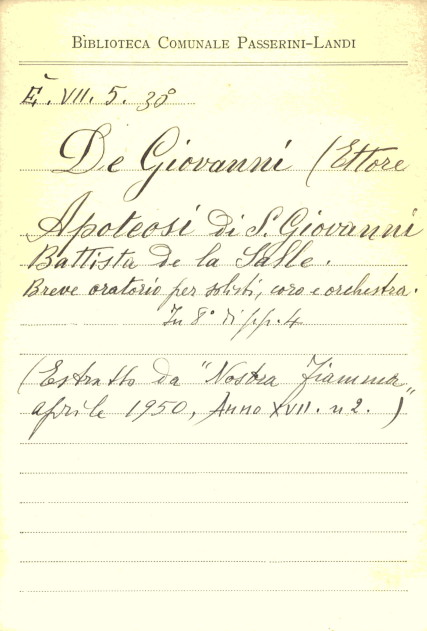 BIBLIOTECA COMUNALE PASSERINI-LANDI
È. VII. 5. 30°
De Giovanni (Ettore
Apoteosi di S. Giovanni
Battista de la Salle.
Breve oratorio per solisti, coro e orchestra.
In 8° di pp. 4
(Estratto da "Nostra Fiamma"
aprile 1950, Anno XVII. n 2. )